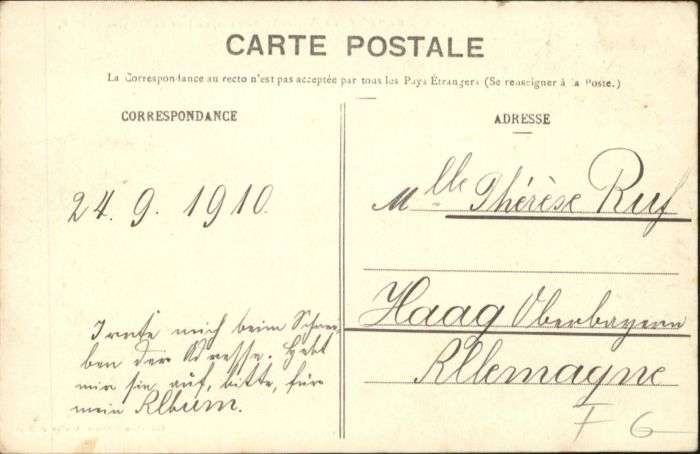 CARTE POSTALE
La Correspondance au recto n'est pas acceptée par tous les Pays Étrangers (Se renseigner à la Poste.)
CORRESPONDANCE
ADRESSE
24. 9. 1910.
Mlle Thérèse Ruf
Haag Oberbayern
Allemagne
mich beim Schrei-
ben der Adresse. Hebt
mir sie auf, bitte, für
mein Album.
F 6